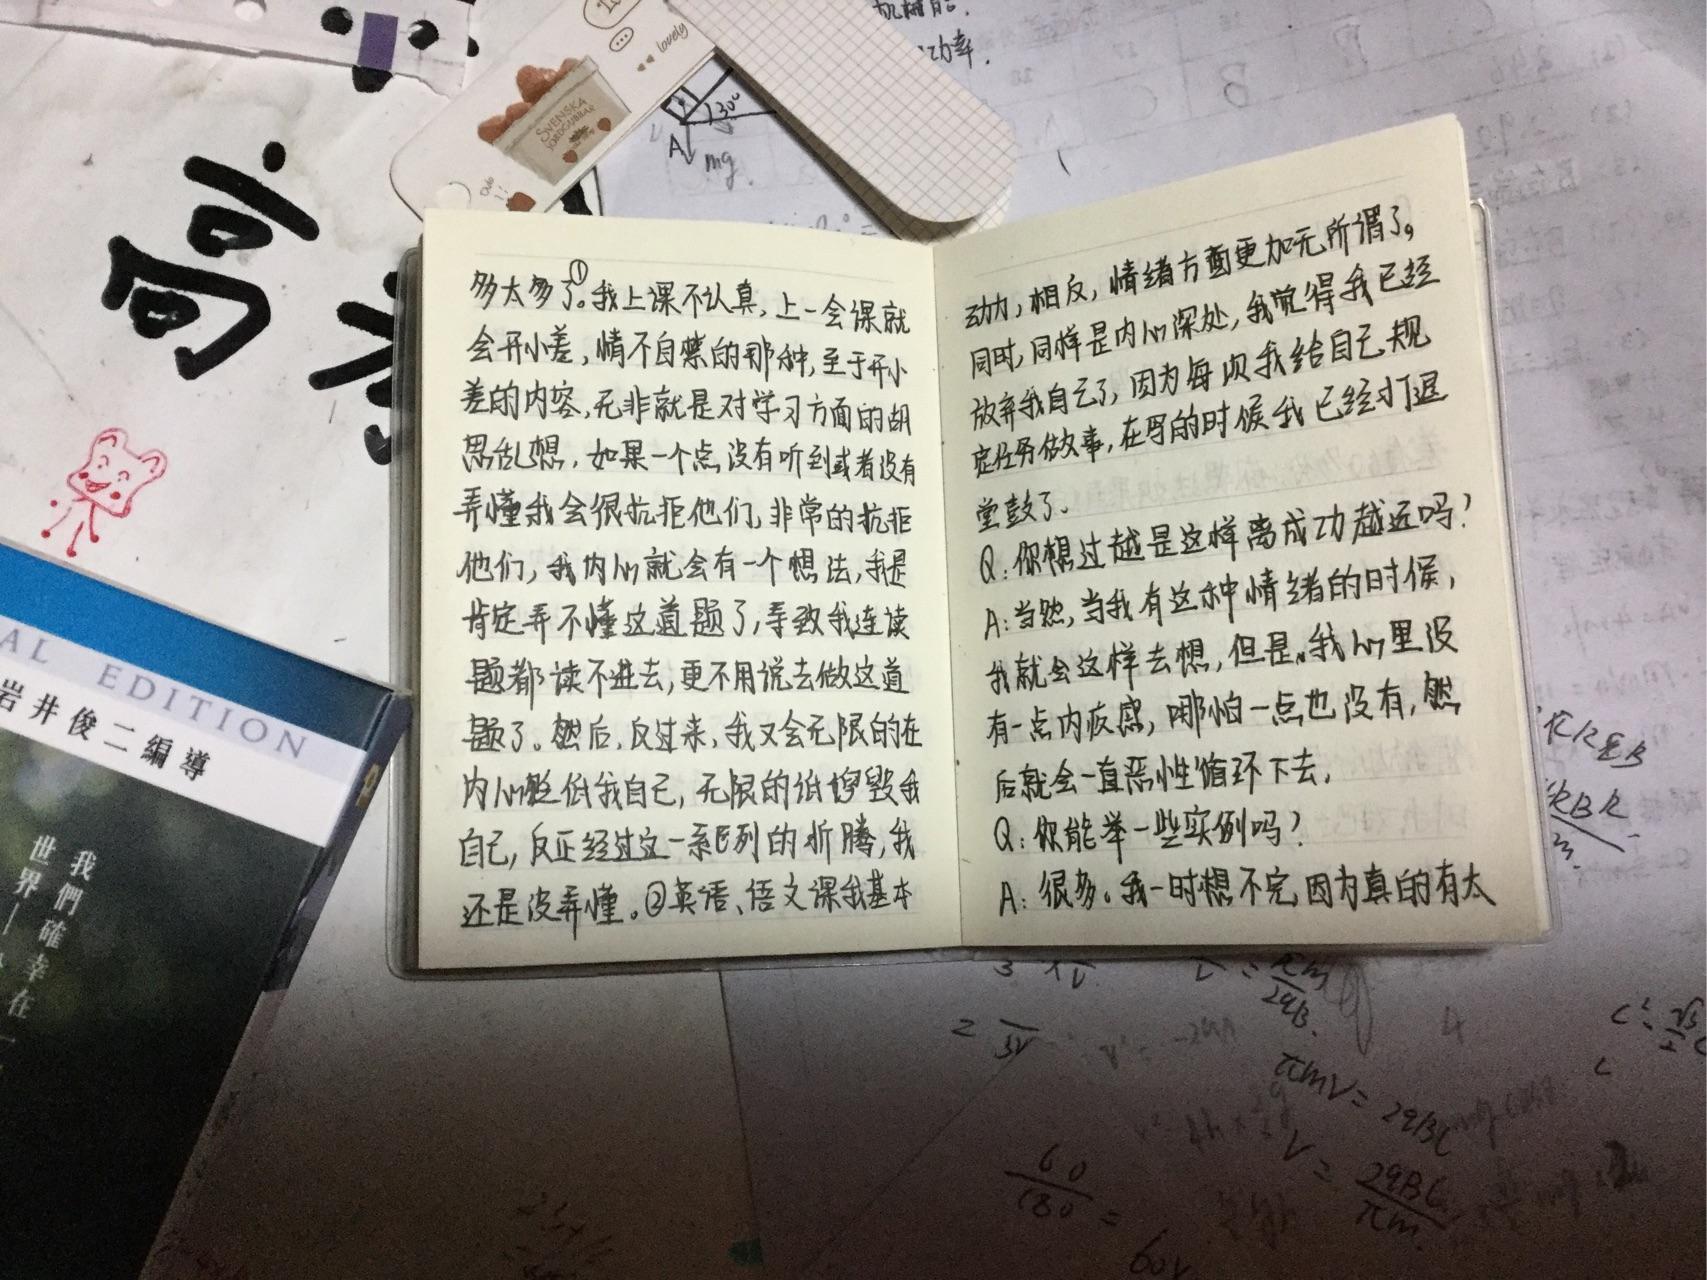 多太多了。①我上课不认真,上一会课就
会开小差,情不自禁的那种,至于开小
差的内容,无非就是对学习方面的胡
思乱想,如果一个点没有听到或者没有
弄懂我会很抗拒他们,非常的抗拒
他们,我内心就会有一个想法,我是
肯定弄不懂这道题了,导致我连读
题都读不进去,更不用说去做这道
题了。然后,反过来,我又会无限的在
内心贬低我自己,无限的诋毁我
自己,反正经过这一系列的折腾,我
还是没弄懂。②英语、语文课我基本
动力,相反,情绪方面更加无所谓了。
同时,同样是内心深处,我觉得我已经
放弃我自己了,因为每次我给自己规
定任务做事,在写的时候我已经打退
堂鼓了.
Q:你想过越是这样离成功越远吗?
A:当然,当我有这种情绪的时候,
我就会这样去想,但是,我心里没
有一点内疚感,哪怕一点也没有,然
后就会一直恶性循环下去,
Q:你能举一些实例吗?
A:很多。我一时想不完,因为真的有太
高
功率.
lovely
SVENSKA
JORDGUBBAR
30°
A
mg.
AL EDITION
岩井俊二編導
我們確幸在
世界—
πmv = 2qBL
V = 2qBL/πm
60/180 =